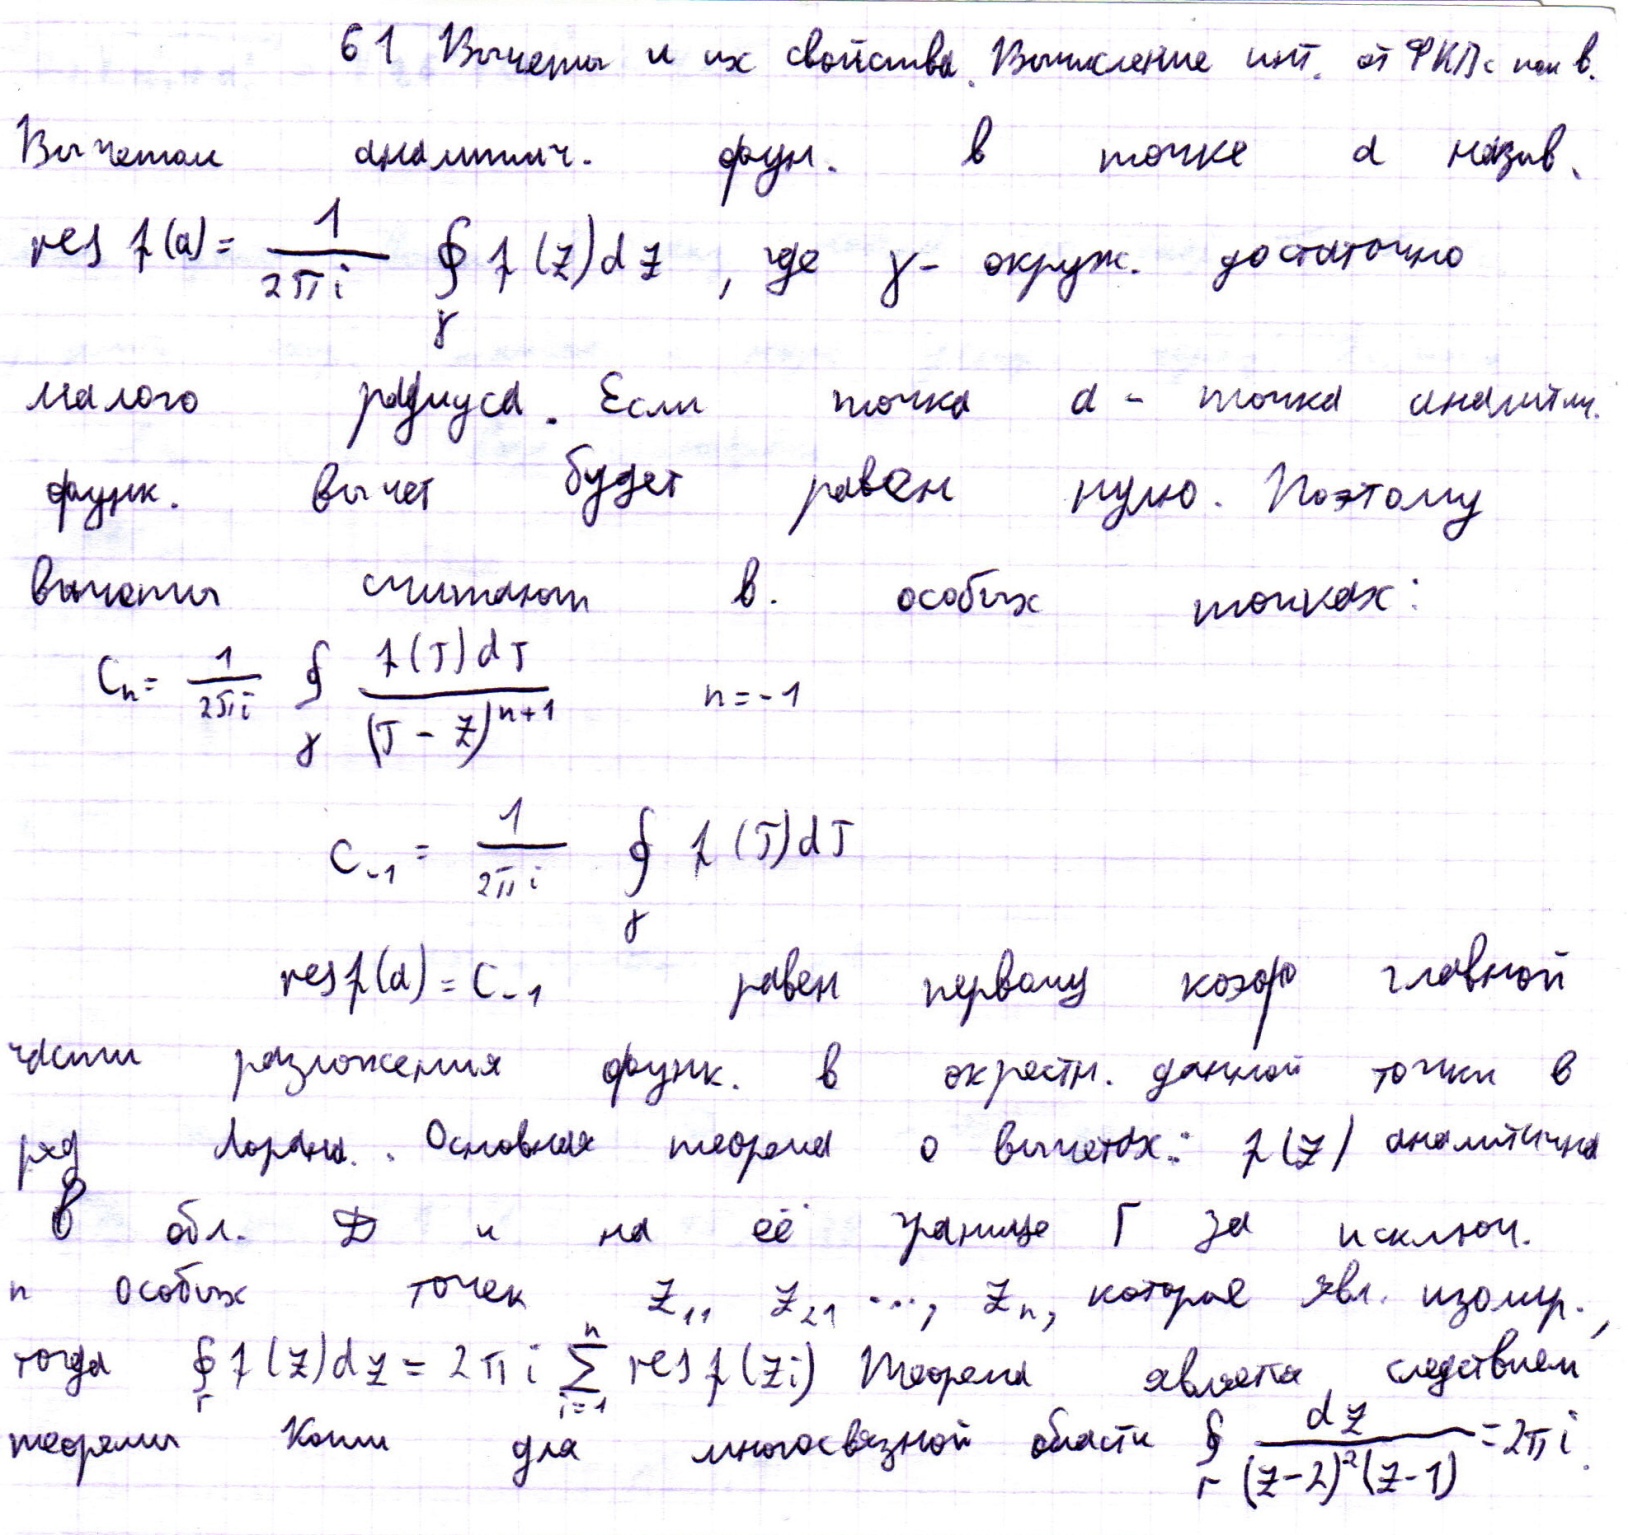 61 Вычеты и их свойства. Вычисление инт. от ФКП с пом в.
Вычетом аналитич. фун. в точке a назыв.
res f(a) = \frac{1}{2πi} \oint_γ f(z)dz, где γ - окруж. достаточно
малого радиуса. Если точка a - точка аналитич.
функ. вычет будет равен нулю. Поэтому
вычеты считают в. особых точках:
C_n = \frac{1}{2πi} \oint_γ \frac{f(T)dT}{(T - z)^{n+1}} n = -1
C_{-1} = \frac{1}{2πi} \oint_γ f(T)dT
res f(a) = C_{-1} равен первому коэф главной
части разложения функ. в окрестн. данной точки в
ряд Лорана. Основная теорема о вычетах: f(z) аналитична
в обл. D и на её границе Г за исключ.
n особых точек z_1, z_2, ..., z_n, которые явл. изолир.,
тогда \oint_Г f(z)dz = 2πi \sum_{i=1}^{n} res f(z_i) Теорема является следствием
теоремы Коши для многосвязной области \oint_Г \frac{dz}{(z-2)^2(z-1)} = 2πi.